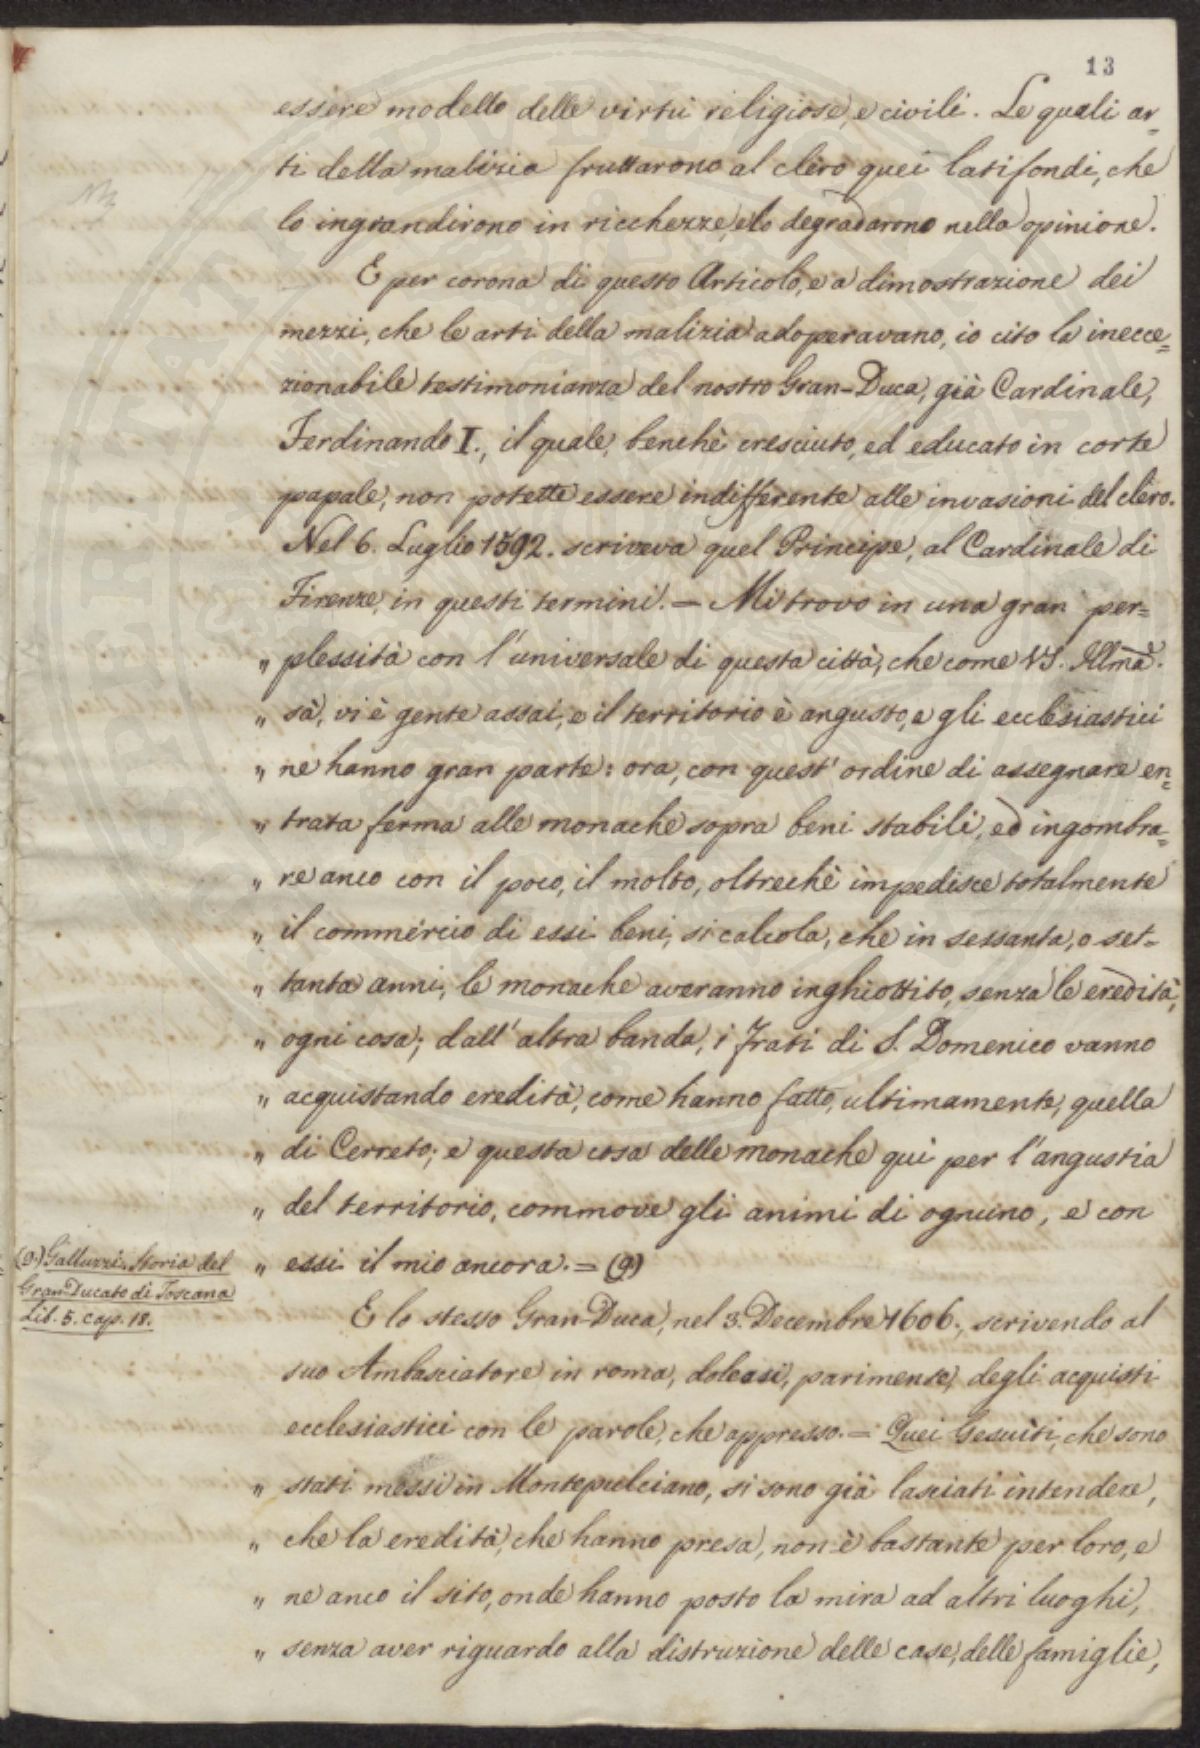 13
essere modello delle virtù religiose, e civili. Le quali ar-
ti della malizia fruttarono al clero quei latifondi, che
lo ingrandirono in ricchezze, e lo degradarono nella opinione.
E per corona di questo Articolo, e a dimostrazione dei
mezzi, che le arti della malizia adoperavano, io cito la inecce=
zionabile testimonianza del nostro Gran-Duca, già Cardinale,
Ferdinando I., il quale, benchè cresciuto, ed educato in corte
papale, non potette essere indifferente alle invasioni del clero.
Nel 6. Luglio 1592. scriveva quel Principe, al Cardinale di
Firenze, in questi termini. = Mi trovo in una gran per=
„ plessità con l'universale di questa città, che come VS. Illmã.
„ sà, vi è gente assai, e il territorio è angusto, e gli ecclesiastici
„ ne hanno gran parte: ora, con quest' ordine di assegnare en=
„ trata ferma alle monache sopra beni stabili, ed ingombra=
„ re anco con il poco, il molto, oltrechè impedisce totalmente
„ il commercio di essi beni, si calcola, che in sessanta, o set-
„ tanta anni, le monache averanno inghiottito, senza le eredità,
„ ogni cosa; dall' altra banda, i Frati di S. Domenico vanno
„ acquistando eredità, come hanno fatto, ultimamente, quella
„ di Cerreto; e questa cosa delle monache qui per l'angustia
„ del territorio, commove gli animi di ognuino, e con
„ essi il mio ancora. = (9)
(9.) Galluzzi. Storia del
Gran-Ducato di Toscana
Lib. 5. cap. 18.
E lo stesso Gran-Duca, nel 3. Decembre 1606., scrivendo al
suo Ambasciatore in roma, doleasi, parimente, degli acquisti
ecclesiastici con le parole, che appresso. = Quei Gesuiti, che sono
„ stati messi in Montepulciano, si sono già lasciati intendere,
„ che la eredità, che hanno presa, non è bastante per loro, e
„ ne anco il sito, onde hanno posto la mira ad altri luoghi,
„ senza aver riguardo alla distruzione delle case, delle famiglie,